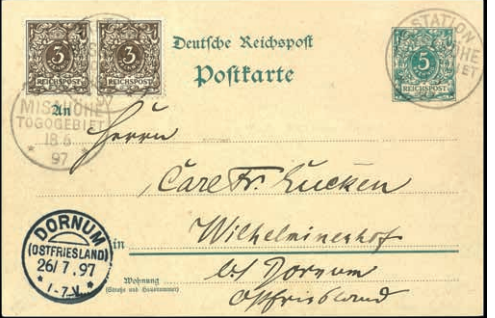 3 3
REICHSPOST REICHSPOST
Deutsche Reichspost
Postkarte
STATION
5
REICHSPOST
MISAHÖHE
TOGOGEBIET
18 6
97
An
Herrn
Carl Fr. Lucken
in Wilhelminenhof
b/ Dornum
Ostfriesland
Wohnung
(Straße und Hausnummer)
DORNUM
(OSTFRIESLAND)
26/7.97
* 1-7.V. *